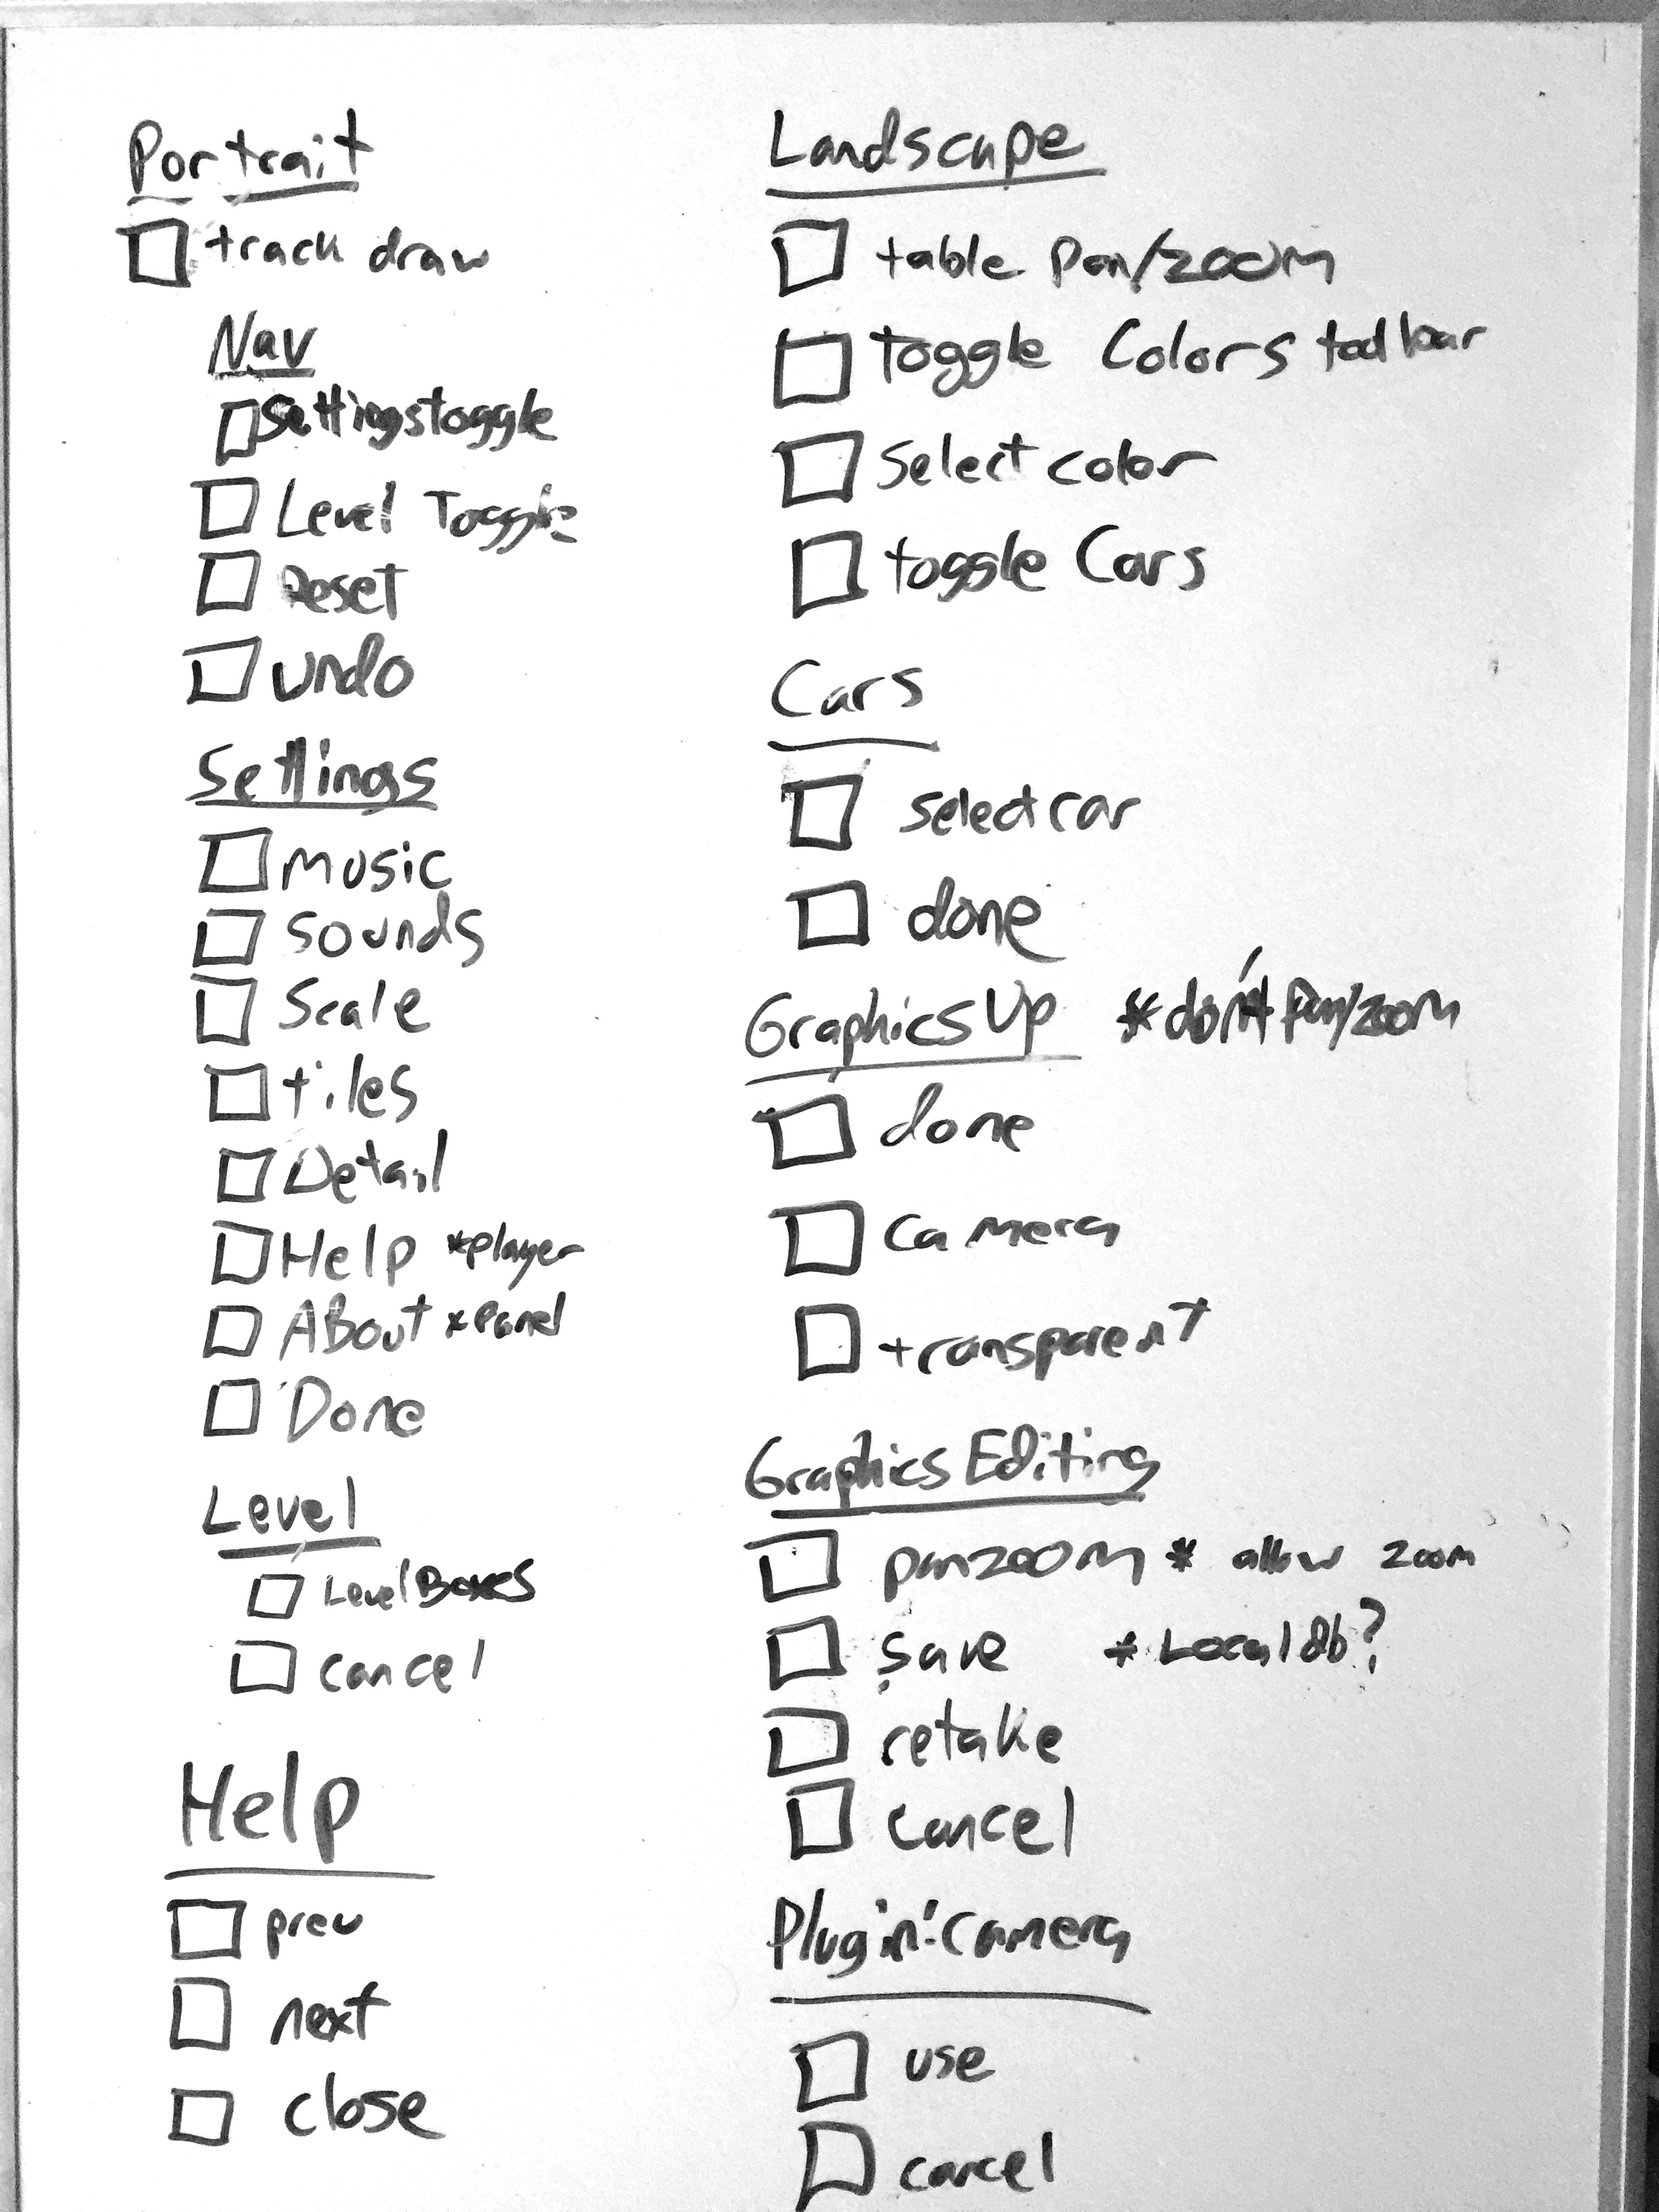 Portrait
track draw
Nav
Settings toggle
Level Toggle
Reset
undo
Settings
music
sounds
Scale
tiles
Detail
Help *player
ABout *Panel
Done
Level
Level Boxes
cancel
Help
prev
next
close
Landscape
table pan/zoom
toggle Colors toolbar
select color
toggle Cars
Cars
select car
done
Graphics Up *don't Pan/zoom
done
camera
transparent
Graphics Editing
pan zoom * allow zoom
save * Local db?
retake
cancel
Plugin: Camera
use
cancel